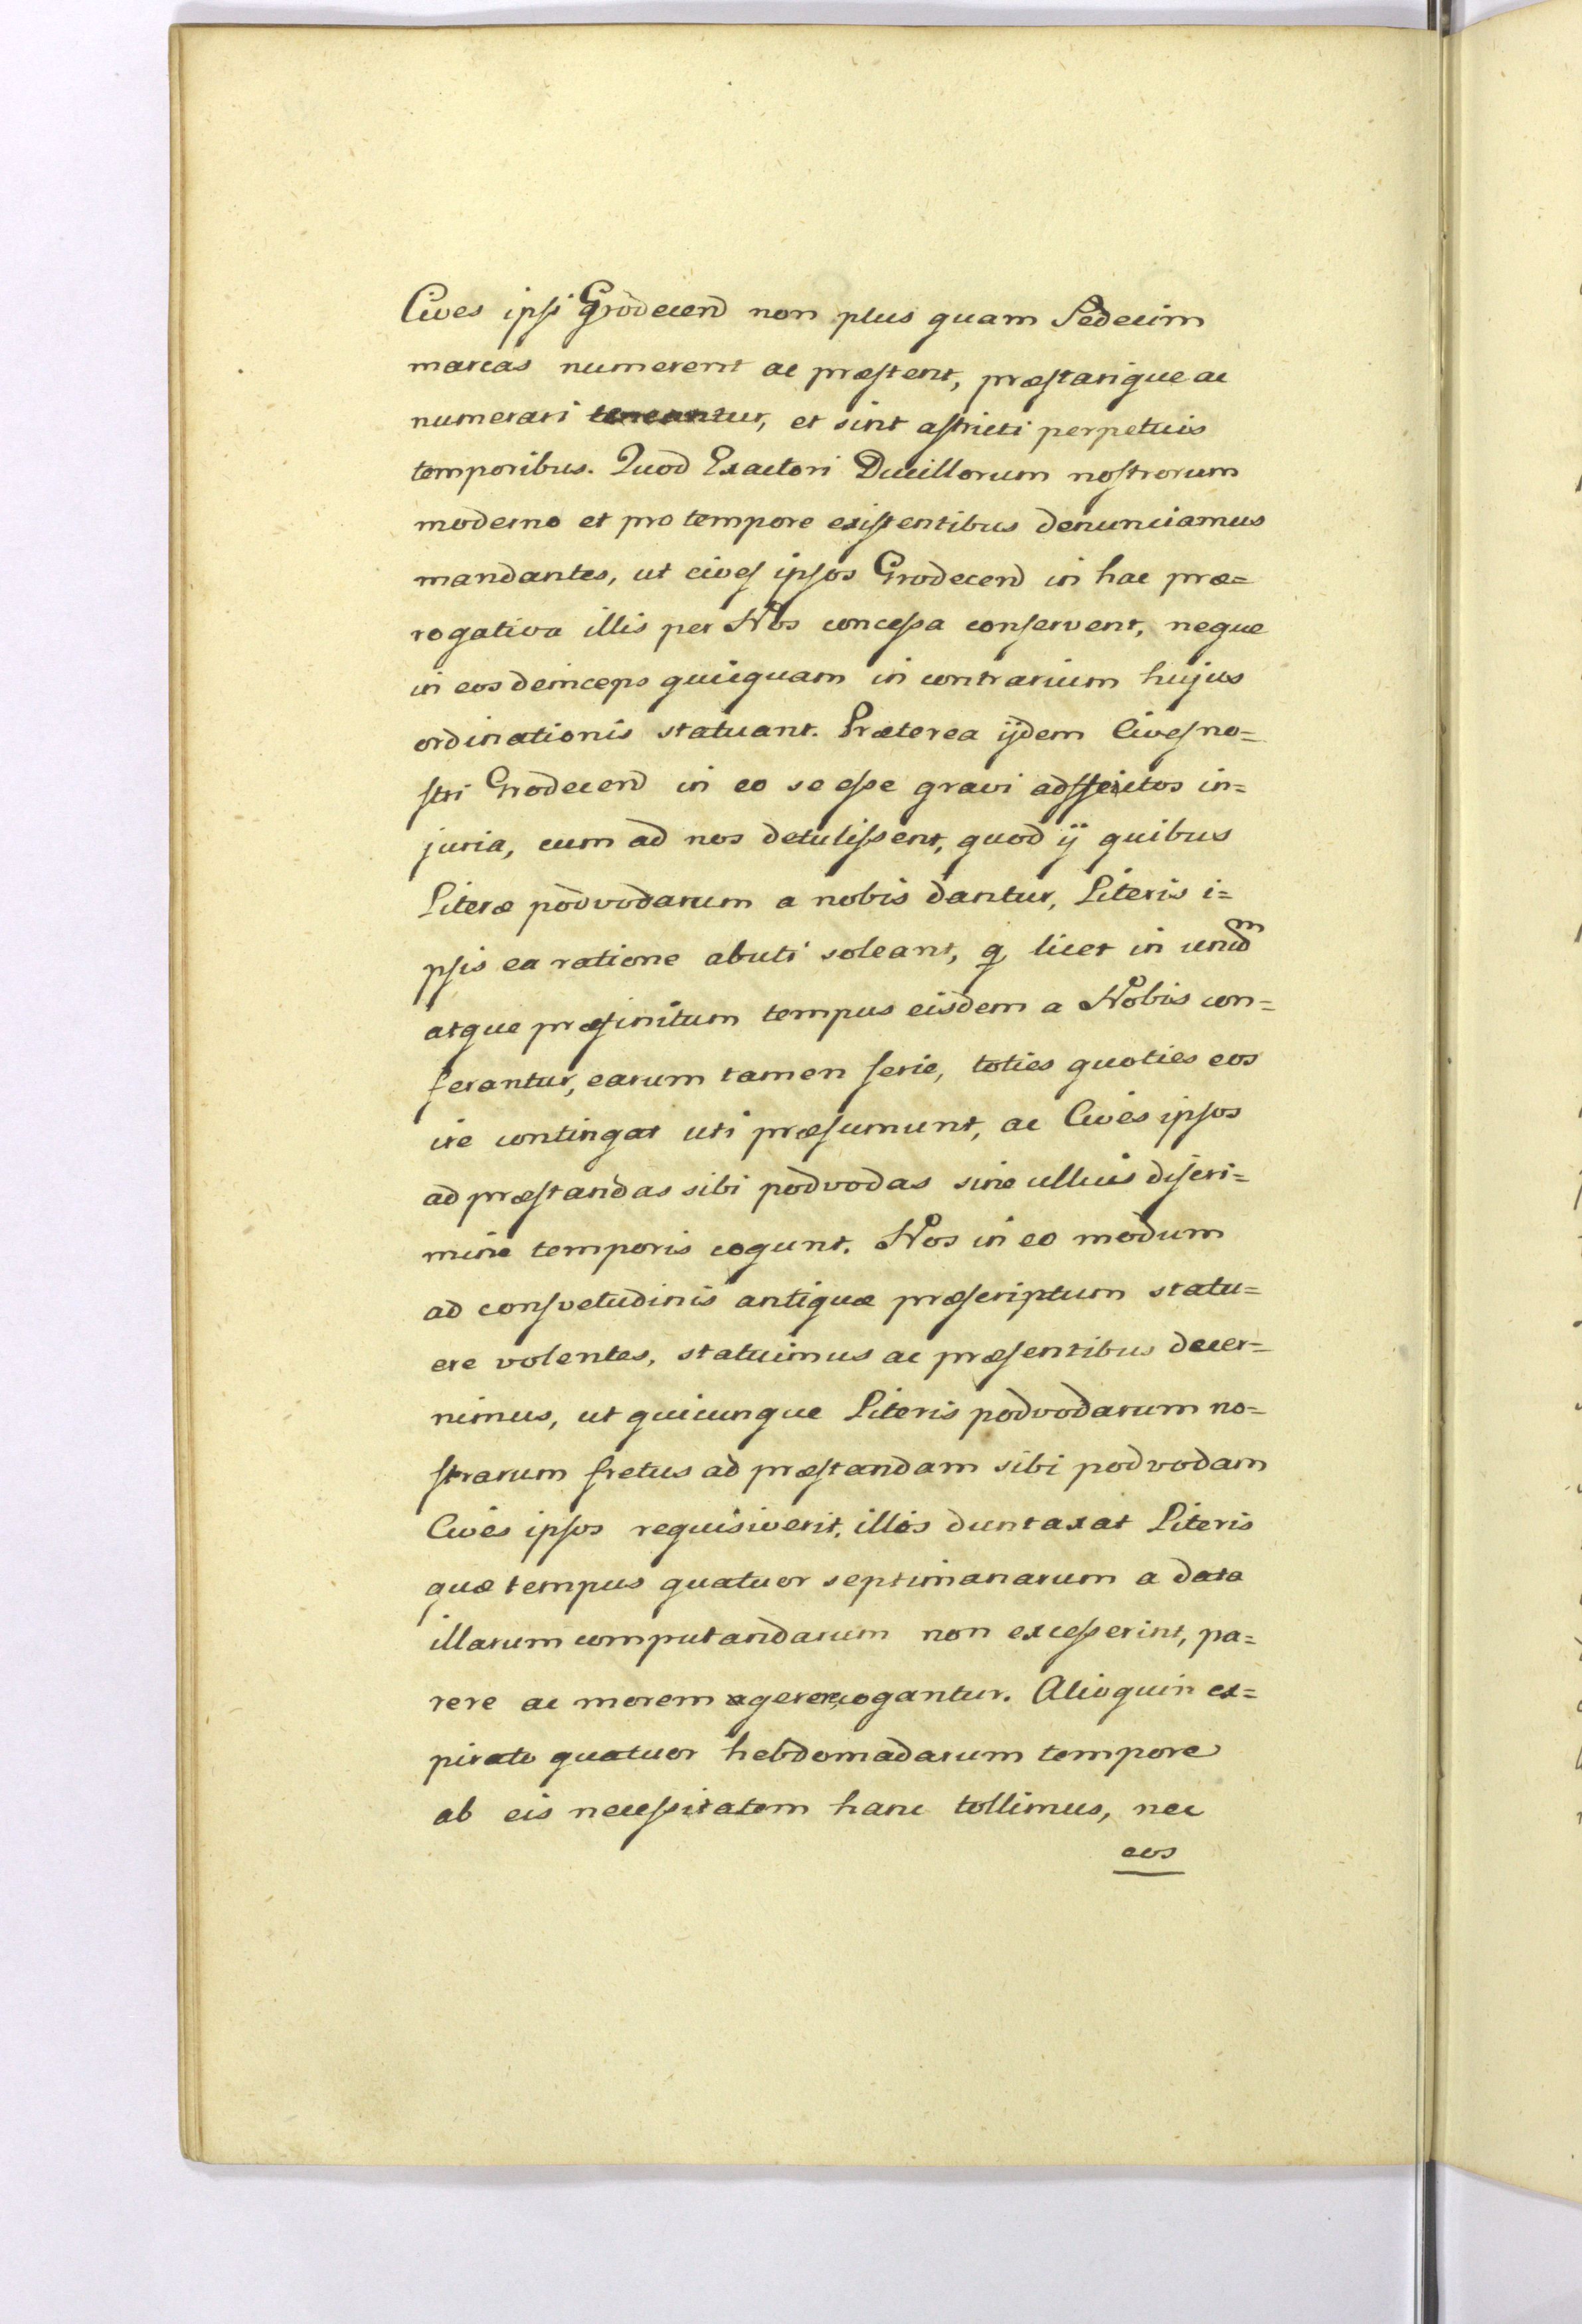 Cives ipsi Grodecen̄ non plus quam Sedecim
marcas numerent ac præstent, præstarique ac
numerari teneantur, et sint astricti perpetuis
temporibus. Quod Exactori Ducillorum nostrorum
moderno et pro tempore existentibus denunciamus
mandantes, ut cives ipsos Grodecen̄ in hac præ=
rogativa illis per Nos concessa conservent, neque
in eos deinceps quicquam in contrarium hujus
ordinationis statuant. Præterea ijdem Cives no=
stri Grodecen̄ in eo se esse gravi adstrictos in=
juria, cum ad nos detulissent, quod ij quibus
Literæ podvodarum a nobis dantur, Literis i=
psis ea ratione abuti soleant, q licet in unum
atque præfinitum tempus eisdem a Nobis con=
ferantur, earum tamen serie, toties quoties eos
ire contingat uti præsumunt, ac Cives ipsos
ad præstandas sibi podvodas sine ullius discri=
mine temporis cogunt. Nos in eo modum
ad consvetudinis antiquæ præscriptum statu=
ere volentes, statuimus ac præsentibus decer=
nimus, ut quicunque Literis podvodarum no=
strarum fretus ad præstandam sibi podvodam
Cives ipsos requisiverit, illis duntaxat Literis
quæ tempus quatuor septimanarum a data
illarum computandarum non excesserint, pa=
rere ac morem gerere, cogantur. Alioquin ex=
pirato quatuor hebdomadarum tempore
ab eis necessitatem hanc tollimus, nec
eos